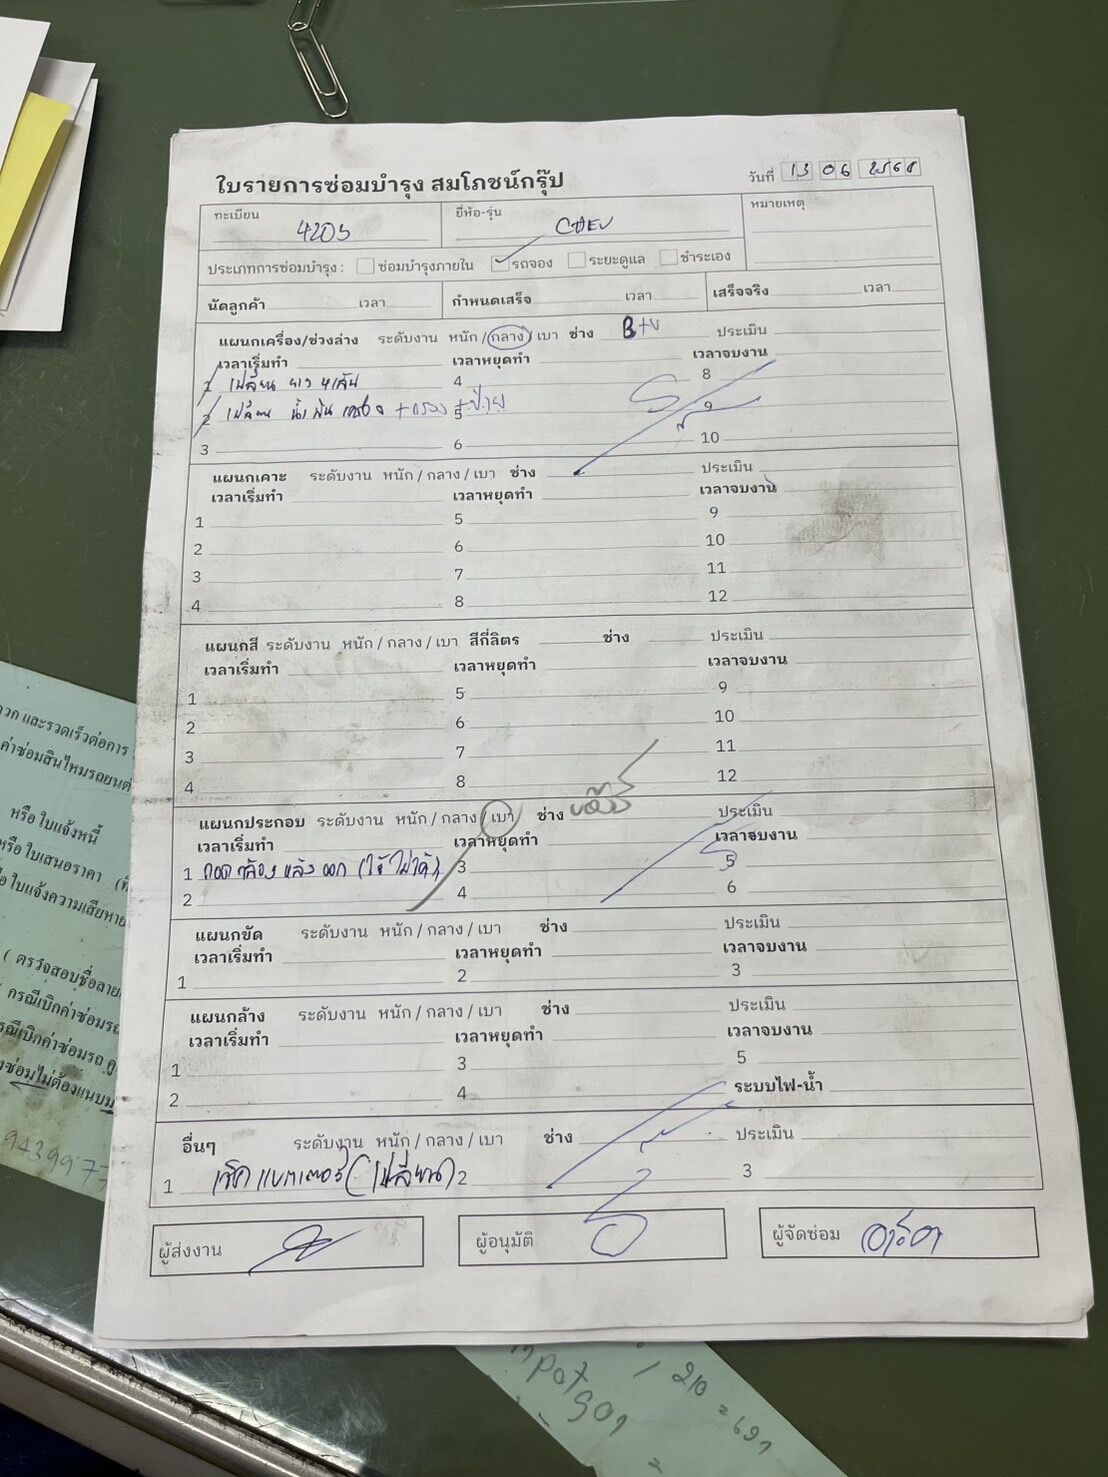 ใบรายการซ่อมบำรุง สมโภชน์กรุ๊ป
วันที่ 13 06 2568
ทะเบียน 4205
ยี่ห้อ-รุ่น CHEV
หมายเหตุ
ประเภทการซ่อมบำรุง : ซ่อมบำรุงภายใน รถจอง ระยะดูแล ชำระเอง
นัดลูกค้า เวลา กำหนดเสร็จ เวลา เสร็จจริง เวลา
แผนกเครื่อง/ช่วงล่าง ระดับงาน หนัก / กลาง / เบา ช่าง B+V ประเมิน
เวลาเริ่มทำ เวลาหยุดทำ เวลาจบงาน
1 เปลี่ยน ยาง 4 เส้น 4 8
2 เปลี่ยน น้ำมันเครื่อง + กรอง + ป้าย 5 9
3 6 10
แผนกเคาะ ระดับงาน หนัก / กลาง / เบา ช่าง ประเมิน
เวลาเริ่มทำ เวลาหยุดทำ เวลาจบงาน
1 5 9
2 6 10
3 7 11
4 8 12
แผนกสี ระดับงาน หนัก / กลาง / เบา สีกี่ลิตร ช่าง ประเมิน
เวลาเริ่มทำ เวลาหยุดทำ เวลาจบงาน
1 5 9
2 6 10
3 7 11
4 8 12
แผนกประกอบ ระดับงาน หนัก / กลาง / เบา ช่าง ประเมิน
เวลาเริ่มทำ เวลาหยุดทำ เวลาจบงาน
1 ถอด กล้อง หลัง ออก (ใช้ไม่ได้) 3 5
2 4 6
แผนกขัด ระดับงาน หนัก / กลาง / เบา ช่าง ประเมิน
เวลาเริ่มทำ เวลาหยุดทำ เวลาจบงาน
1 2 3
แผนกล้าง ระดับงาน หนัก / กลาง / เบา ช่าง ประเมิน
เวลาเริ่มทำ เวลาหยุดทำ เวลาจบงาน
1 3 5
2 4 ระบบไฟ-น้ำ
อื่นๆ ระดับงาน หนัก / กลาง / เบา ช่าง ประเมิน
1 เช็ค แบตเตอรี่ (เปลี่ยน) 2 3
ผู้ส่งงาน ผู้อนุมัติ ผู้จัดซ่อม
และรวดเร็วต่อการ
ค่าซ่อมสินไหมรถยนต์
หรือใบแจ้งหนี้
หรือใบเสนอราคา
ใบแจ้งความเสียหาย
( ตรวจสอบชื่อ
กรณีเบิกค่าซ่อมรถ
กรณีเบิกค่าซ่อมรถ
ซ่อมไม่ต้องแนบ
943997
210 = 691